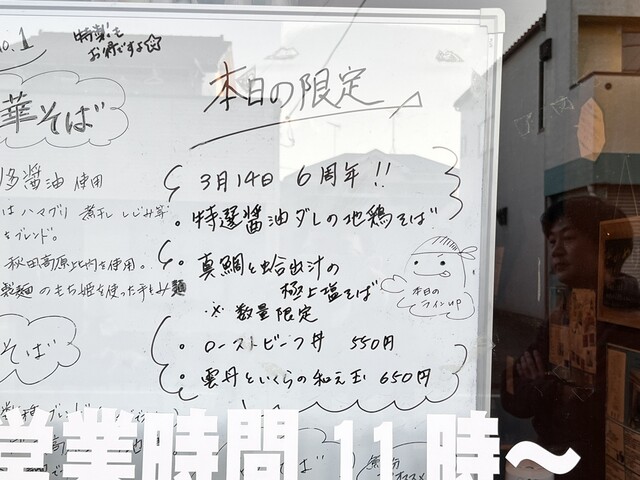 o.1
特製も
お得ですよ☆
華そば
醤油 使用
はハマグリ 煮干し しじみ等
をブレンド。
秋田高原比内を使用。
製麺のもち姫を使った手もみ麺
そば
本日の限定
3月14日 6周年!!
・特選醤油ダレの地鶏そば
・真鯛と蛤出汁の
極上塩そば
※数量限定
本日の
ラインup
・ローストビーフ丼 550円
・雲丹といくらの和え玉 650円
営業時間 11時〜